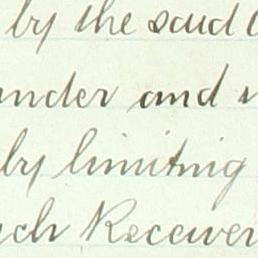 by the said
under and
by limiting
such Receiver